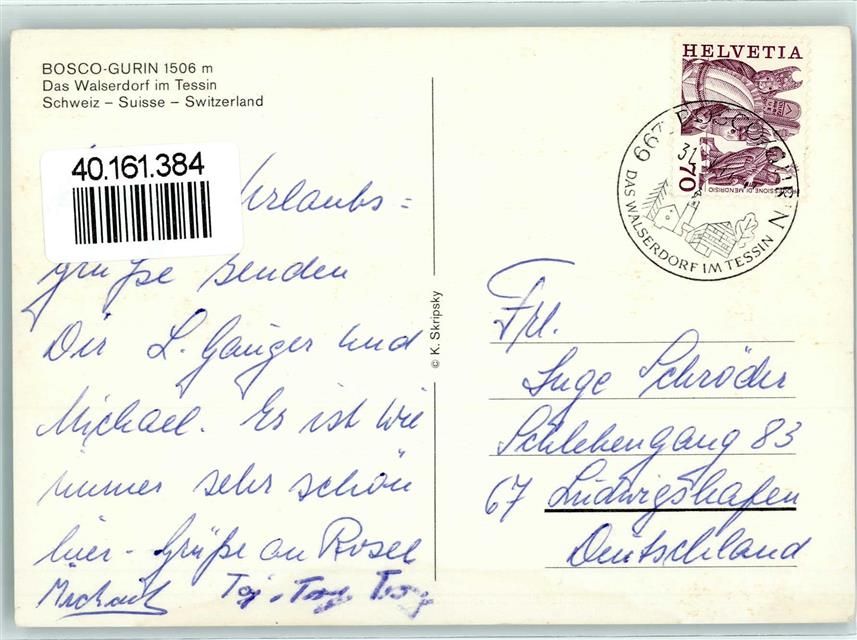 BOSCO-GURIN 1506 m
Das Walserdorf im Tessin
Schweiz – Suisse – Switzerland
40.161.384
Urlaubs=
grüße senden
Dir L. Gauger und
Michael. Es ist wie
immer sehr schön
hier - Grüße an
Michael
© K. Skripsky
HELVETIA
70
BOSCO GURIN
DAS WALSERDORF IM TESSIN
Frl.
Inge Schröder
Schlehengang 83
67 Ludwigshafen
Deutschland